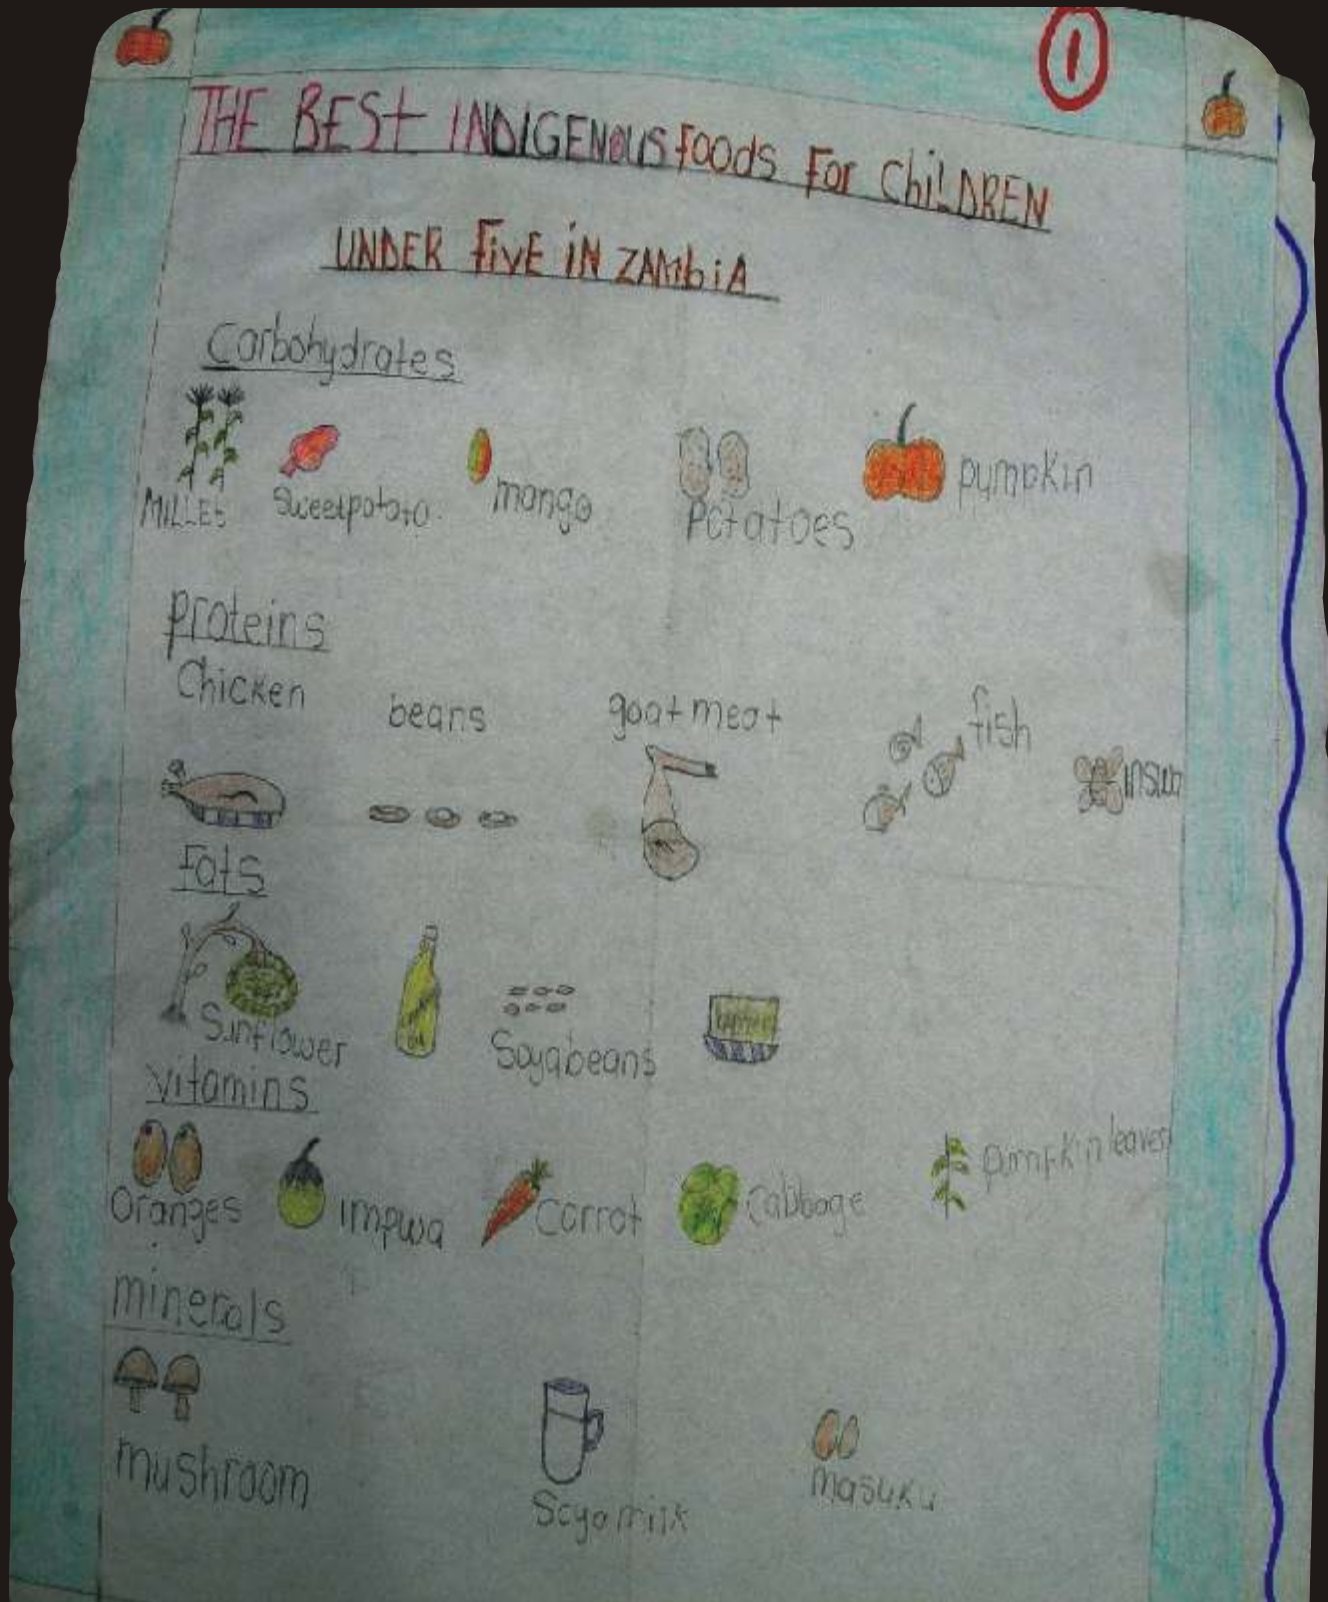 1
THE BESt INDIGENOUS FOODS FOR ChiLDREN
UNDER FiVE iN ZAMbiA
Carbohydrates
MILLEt Sweetpotato. mango Potatoes pumpkin
proteins
Chicken beans goat meat fish inswa
Fats
Sunflower Soyabeans
vitamins
Oranges impwa Carrot Cabbage pumpkin leaves
minerals
mushroom Soya milk Masuku